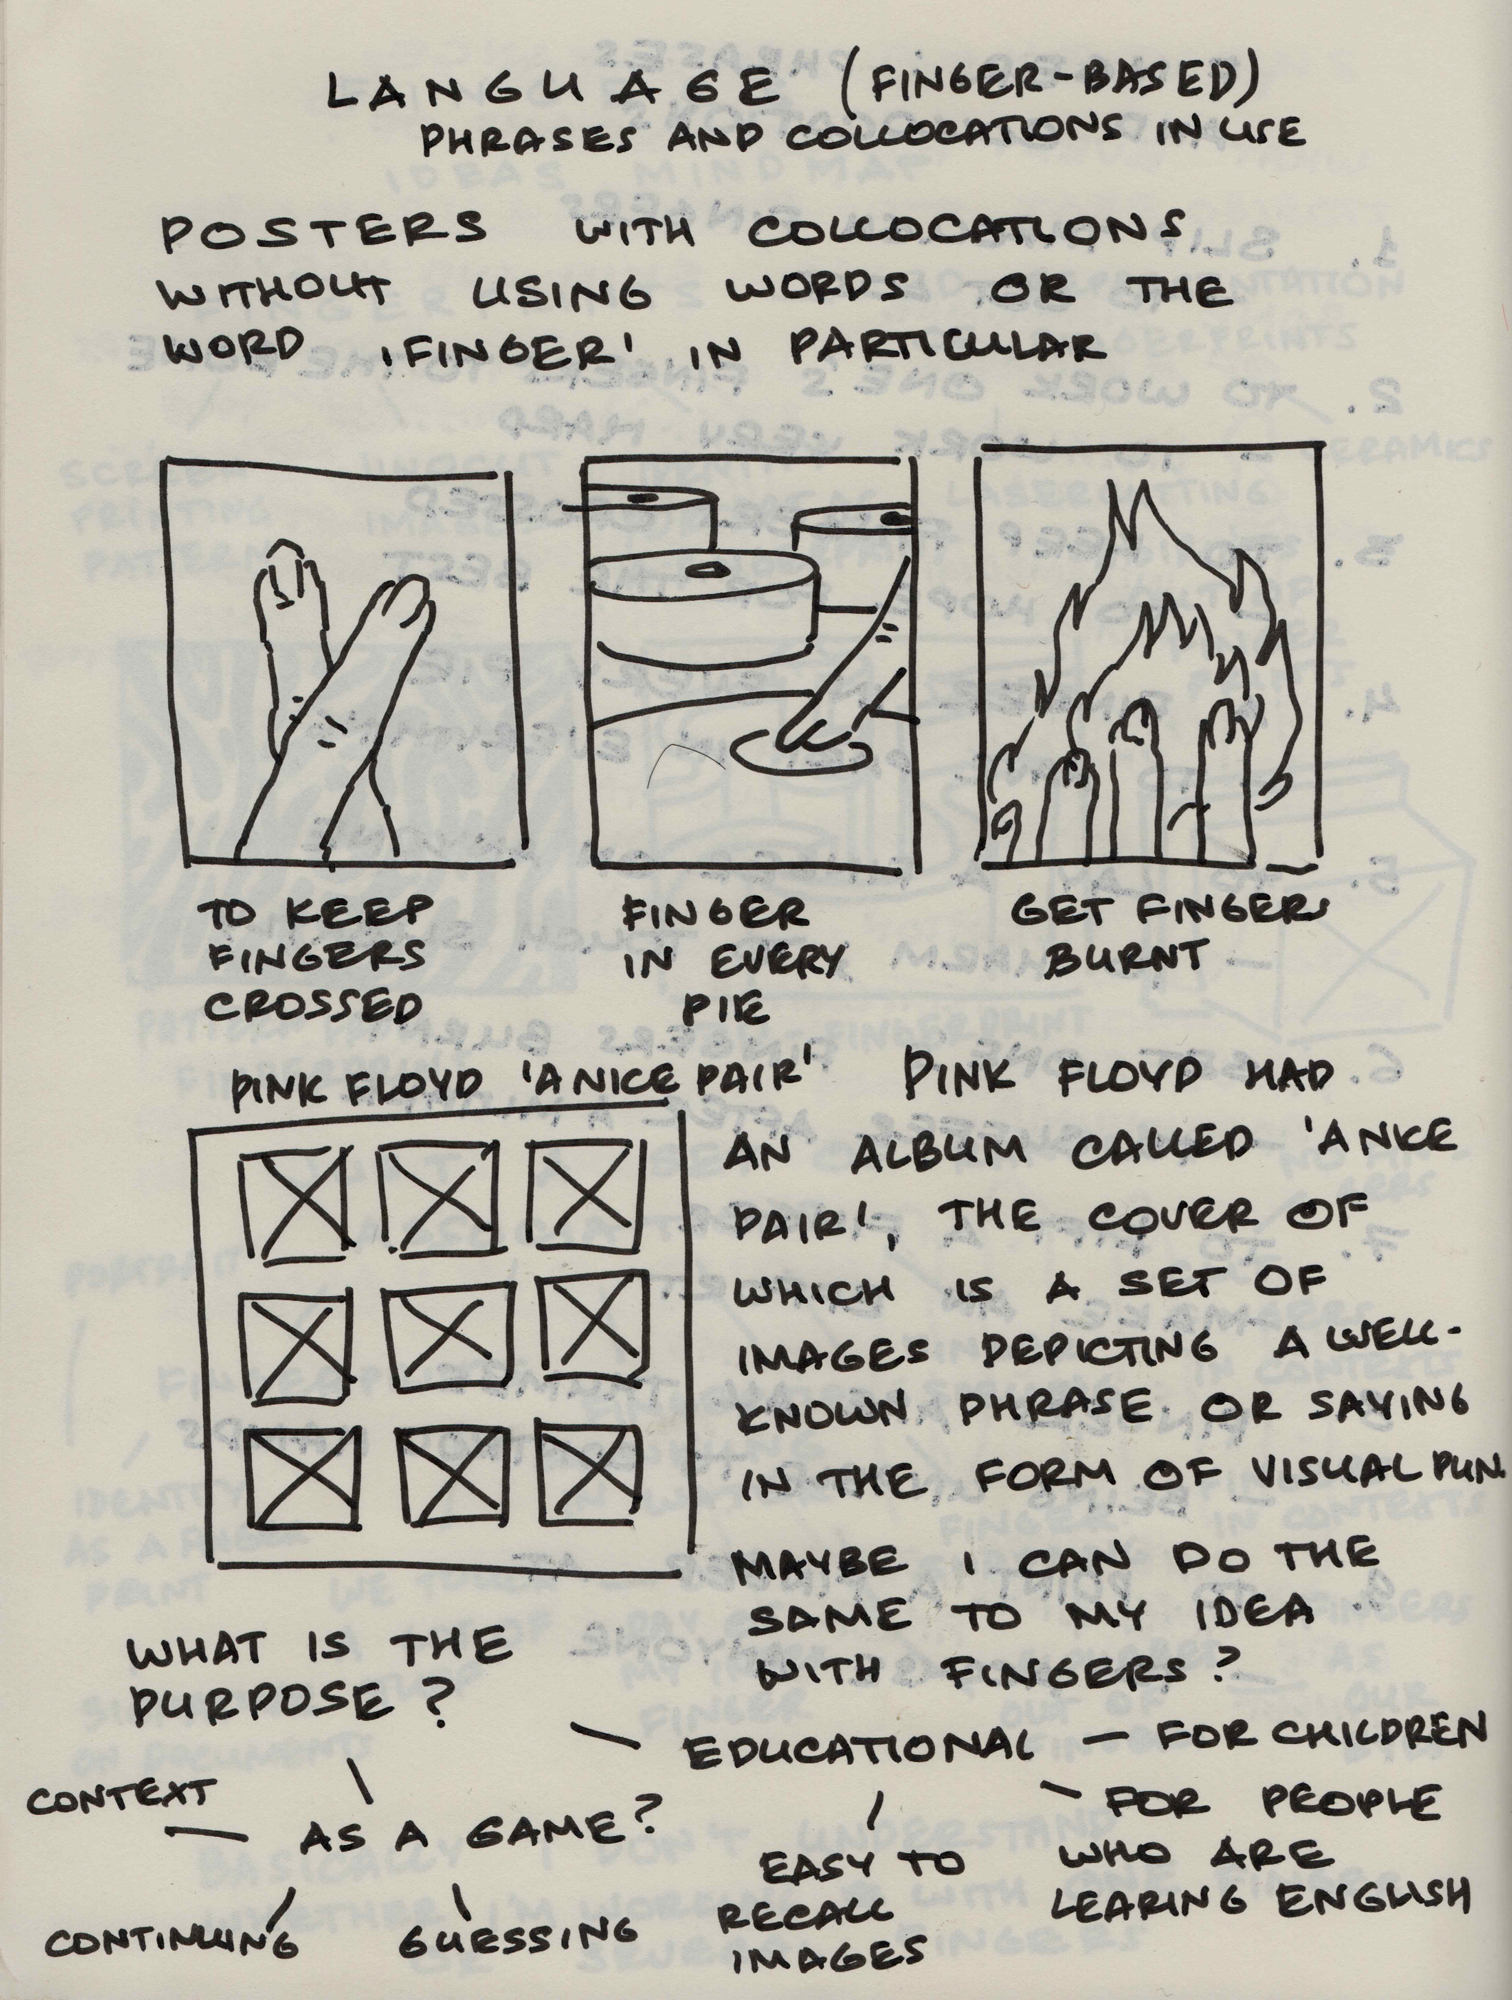 LANGUAGE (FINGER-BASED)
PHRASES AND COLLOCATIONS IN USE
POSTERS WITH COLLOCATIONS
WITHOUT USING WORDS OR THE
WORD 'FINGER' IN PARTICULAR
TO KEEP
FINGERS
CROSSED
FINGER
IN EVERY
PIE
GET FINGERS
BURNT
PINK FLOYD 'A NICE PAIR'
PINK FLOYD HAD
AN ALBUM CALLED 'A NICE
PAIR', THE COVER OF
WHICH IS A SET OF
IMAGES DEPICTING A WELL-
KNOWN PHRASE OR SAYING
IN THE FORM OF VISUAL PUN.
MAYBE I CAN DO THE
SAME TO MY IDEA
WITH FINGERS?
WHAT IS THE
PURPOSE?
EDUCATIONAL — FOR CHILDREN
FOR PEOPLE
WHO ARE
LEARING ENGLISH
EASY TO
RECALL
IMAGES
CONTEXT
AS A GAME?
CONTINUING
GUESSING